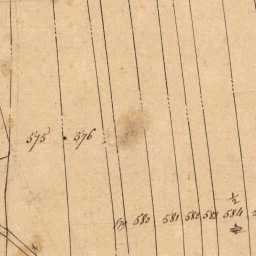 575 576
½
580 581 582 583 584